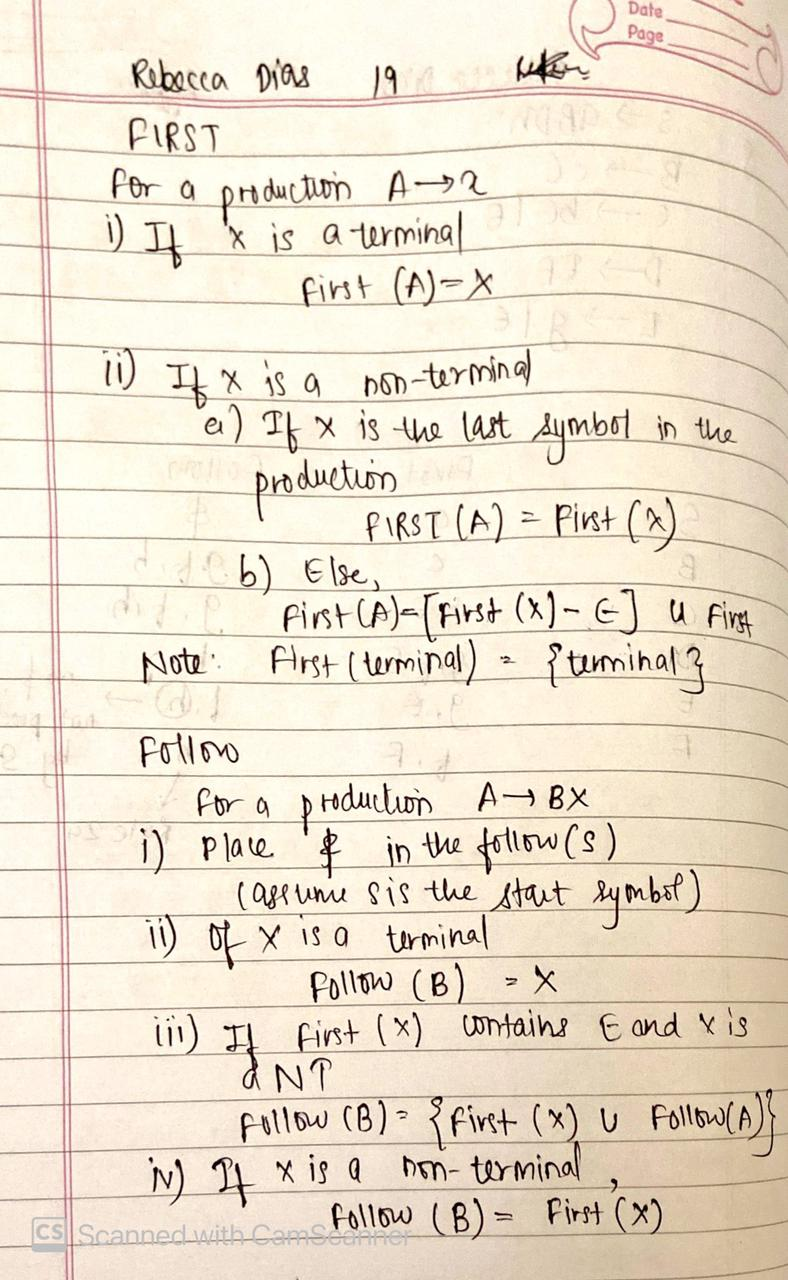 Date
Page
Rebecca Dias 19
FIRST
For a production A→x
i) If x is a terminal
First (A)=X
ii) If x is a non-terminal
a) If x is the last symbol in the
production
FIRST (A) = First (x)
b) Else,
First (A)=[First (x) - ∈] U First
Note: First (terminal) = {terminal}
Follow
For a production A→BX
i) Place $ in the follow (s)
(assume s is the start symbol)
ii) If x is a terminal
Follow (B) = X
iii) If First (x) contains ∈ and x is
a NT
Follow (B) = {First (x) U Follow(A)}
iv) If x is a non-terminal,
Follow (B) = First (x)
CS Scanned with CamScanner